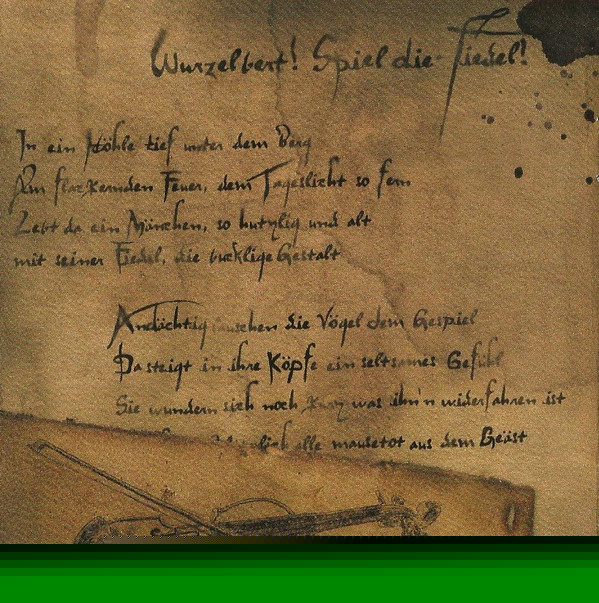 Wurzelbert! Spiel die Fiedel!
In ein Höhle tief unter dem Berg
Am flackernden Feuer, dem Tageslicht so fern
Lebt da ein Männchen, so hutzlig und alt
mit seiner Fiedel, die bucklige Gestalt
Andächtig lauschen die Vögel dem Gespiel
Da steigt in ihre Köpfe ein seltsames Gefühl
Sie wundern sich noch kurz was ihn'n widerfahren ist
alle mausetot aus dem Geäst